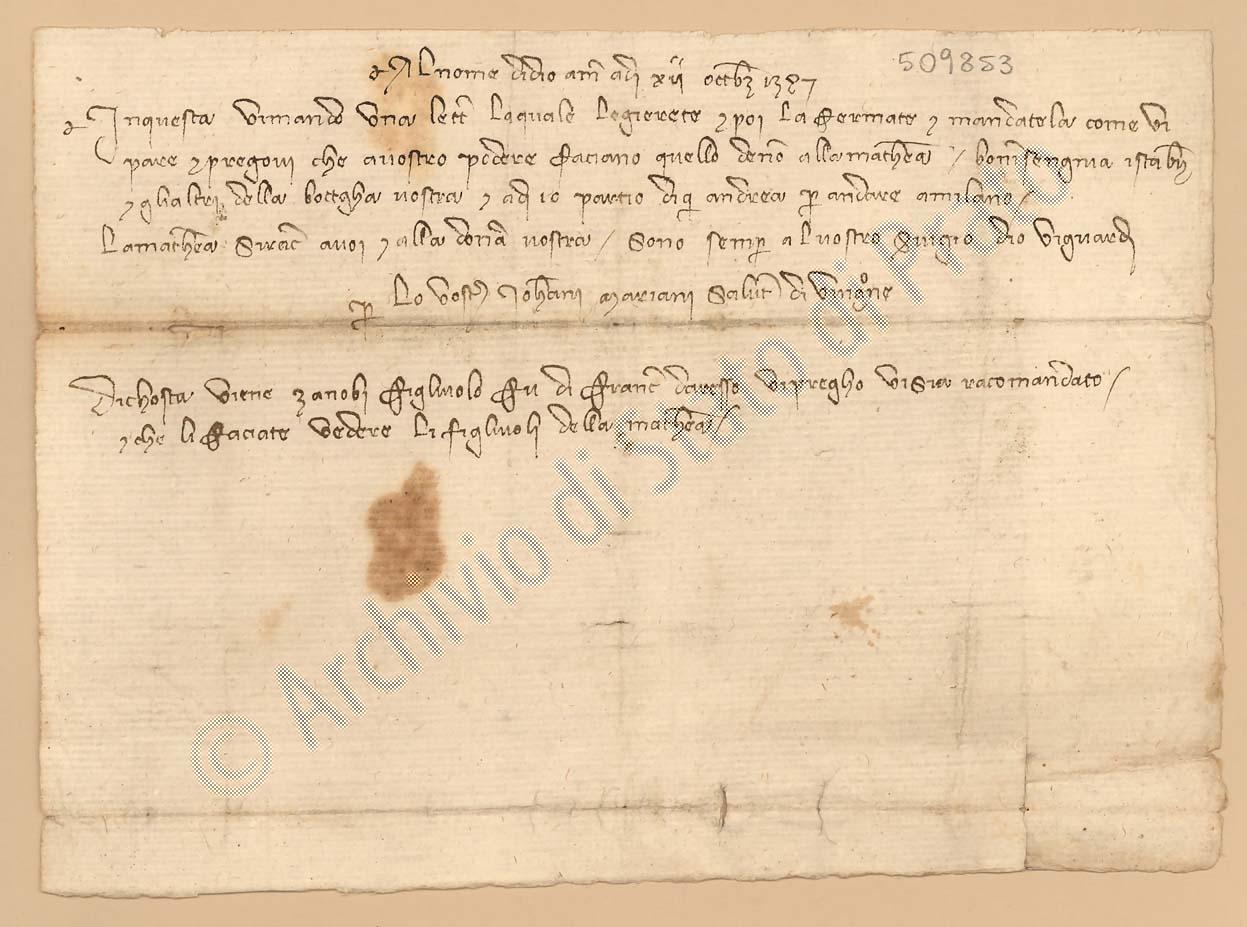 509853
+ Al nome di dio am̅ adi xii octb̅ 1387
+ Inquesta vimando una lett̅ laquale legierete ⁊ poi la fermate ⁊ mandatela come vi
pare ⁊ pregovi che avostro podere faciano quello deno̅ alla mathea / boninsengnia istab̅
⁊ glialtri della bottegha vostra ⁊ adi 10 partio diq̅ andrea p̲ andare amilano /
Lamathea siracc̅ avoi ⁊ alla don̅a vostra / sono semp̲ alvostro s̅vigio dio viguardi
p̲ Lo vost̅ Joh̅ani mariani salut̅ di vingnone
Dichosta viene zanobi figliuolo fu di franc̅ vipregho visia racomandato /
⁊ che li faciate vedere li figliuoli della mathea /
© Archivio di Stato di Prato